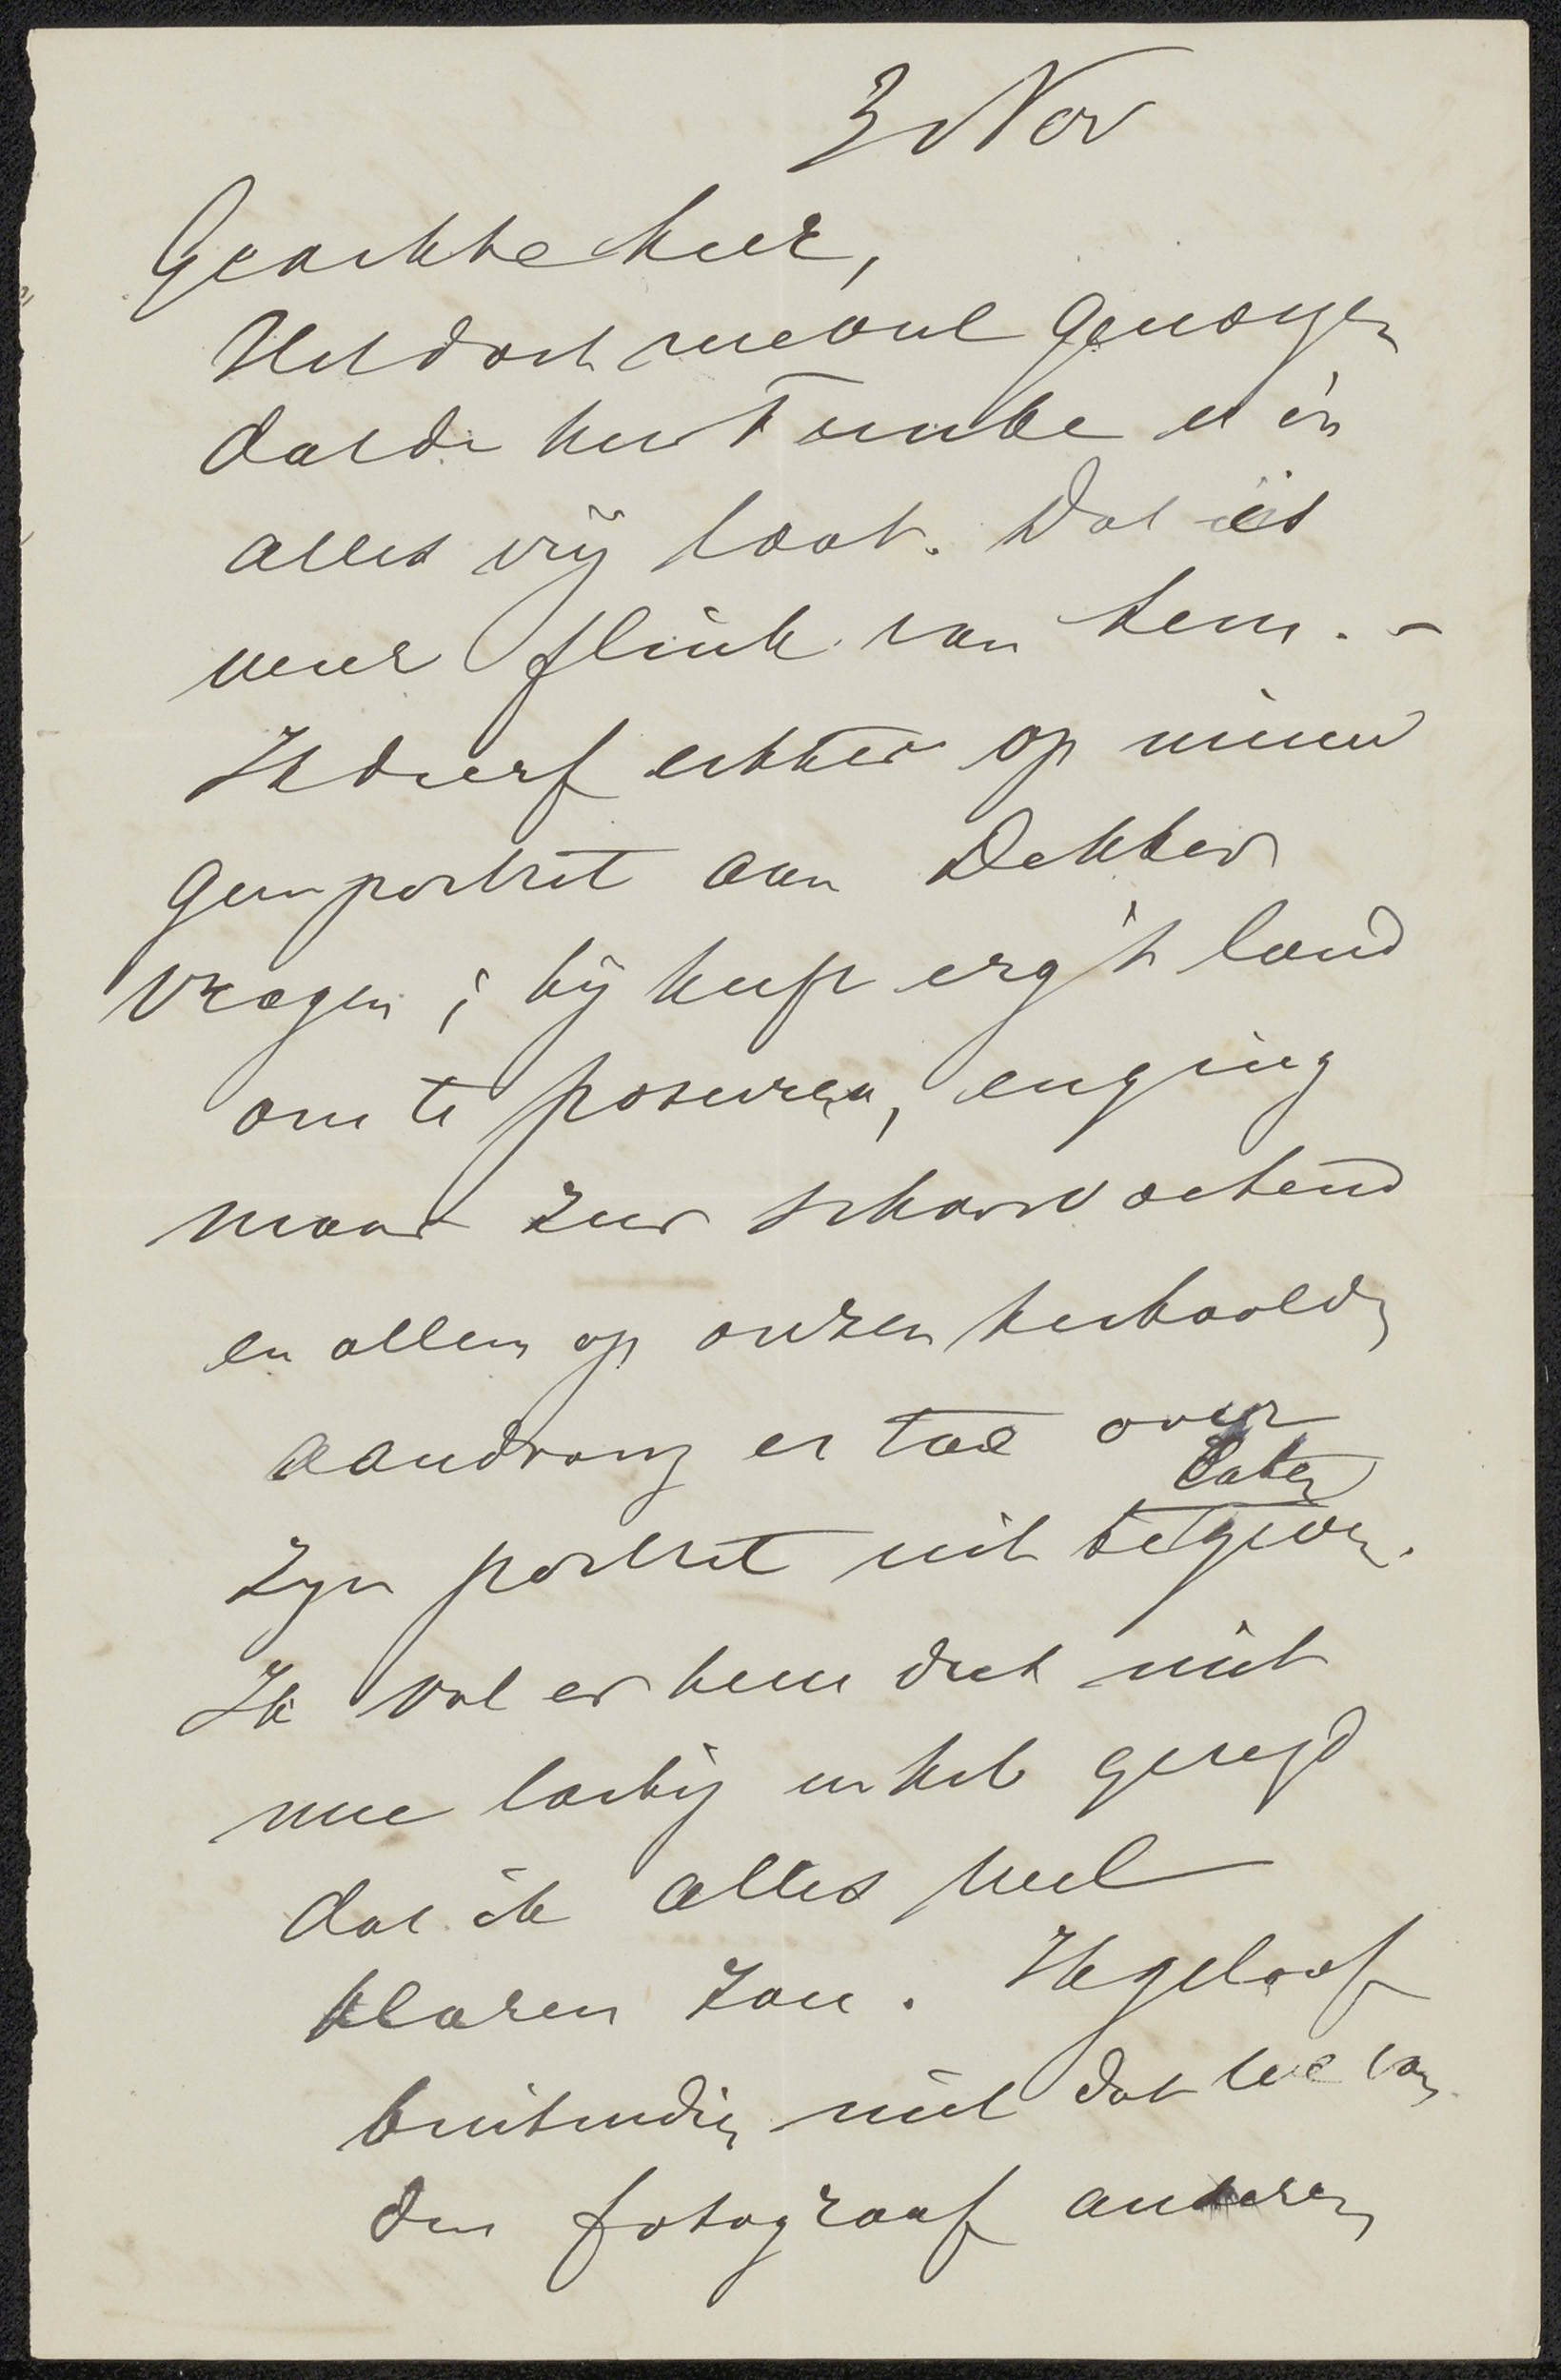 3 Nov
Geachte heer,
Het doet me veel genoegen
dat de heer Funke u in
alles vrij laat. Dat is
weer flink van hem. –
Ik durf echter op nieuw
geen portret aan Dekker
vragen; hij heeft erg 't land
om te poseeren, en ging
maar zeer schoorvoetend
en alleen op onzen herhaalden
aandrang er toe over
zyn portret uit te laten geven.
Ik val er hem dus niet
mee lastig en heb gezegd
dat ik alles wel
klaren zou. Ik geloof
buitendien niet dat we van
den fotograaf anderen